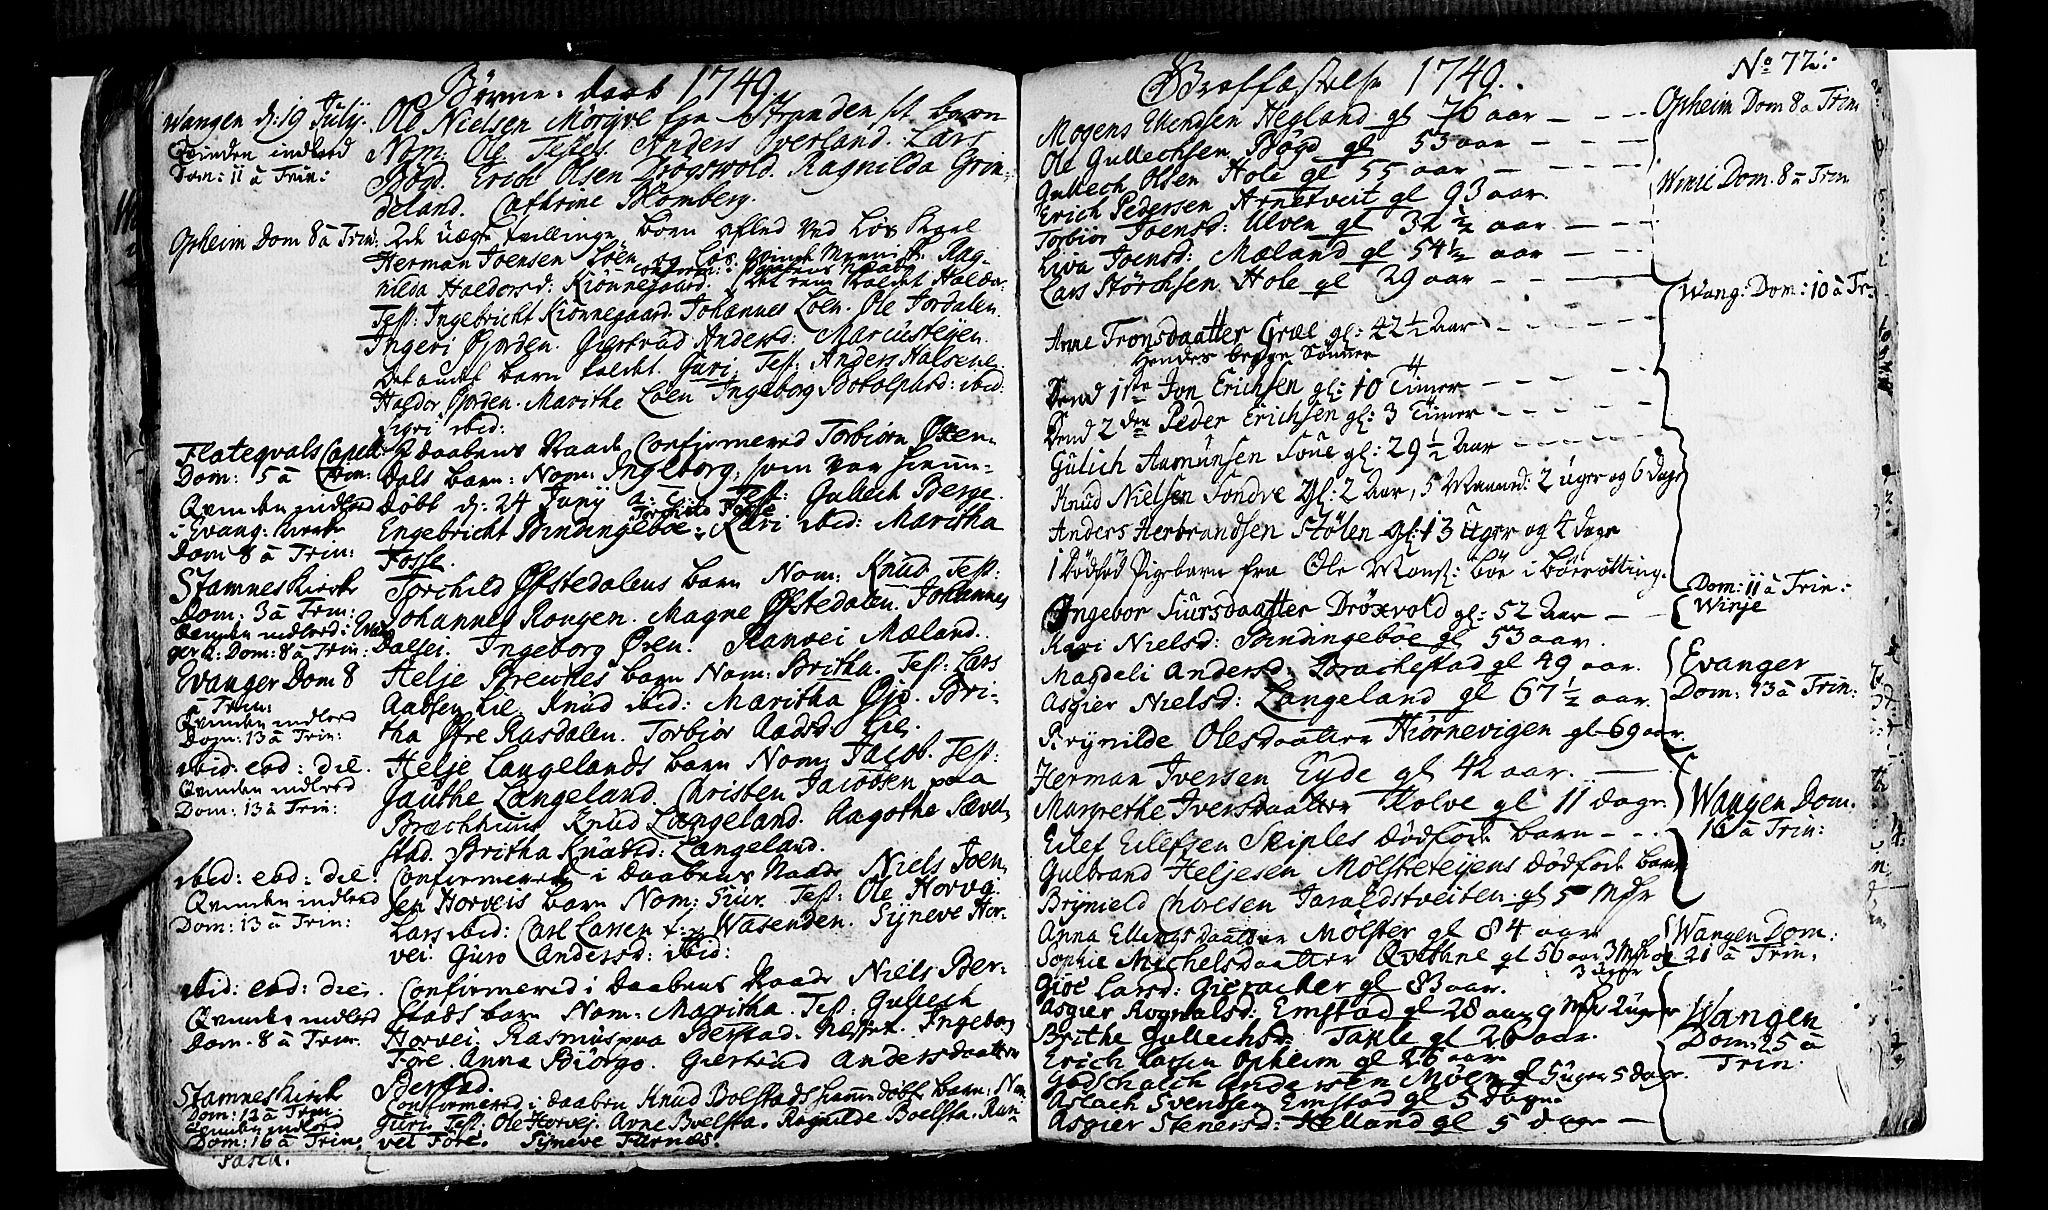 Børne. daab 1749.
Wangen d: 19 July.
Qvinden indleed
Dom: 11 à Trin:
Ole Nielsen Mörqve fra Stranden barn
Nom: Ole. Testes. Anders Overland. Lars
Bögd. Erich Olsen Drögswold. Ragnilda Grin-
deland. Cathrine Blomberg.
Opheim Dom 8 à Trin:
2de uægte tvillinge börn aflad ved Lös
Herman Joensen Löen og Rag-
nilda Haldorsd: Kiönnegaard. Det een kaldet Haldor
Test: Ingebricht Kiönnegaard. Johannes Löen. Ole Jordalen.
Ingeri Gjorden. Giertrud Andersd: Marcusteyen.
Det andet barn kaldet. Guri. Test: Anders Halsene.
Haldor Gjorden. Marithe Löen Ingeborg ibid:
Sigri ibid:
Flateqvals Capell
Dom: 5 à Trin:
Qvinden indleed
i Evang: kirke
Dom 8 à Trin:
I daabens Naade Confirmered Torbiörn Öxen-
dals barn: Nom: Ingeborg, som var hiemme-
döbt d: 24 Junij a: c: Test: Gullech Berge.
Torchild Fosse
Engebricht Bindingeböe. Kari ibid: Maritha
Fosse.
Stamnes kirke
Dom: 3 à Trin:
Qvinden indleed i Evan-
ger k: Dom: 8 à Trin:
Torchild Öfstedalens barn Nom: Knud Test:
Johannes Rongen. Magne Öfstedalen. Johannes
Dalseı. Ingeborg Öxen. Ranvei Mæland.
Evanger Dom 8
à Trin:
Qvinden indleed
Dom: 13 à Trin:
Helje Brewnes barn Nom: Britha. Test: Lars
Knud ibid: Maritha Bri-
tha Öfre Rasdalen. Torbiör
ibid: eod: die.
Qvinden indleed
Dom: 13 à Trin:
Helje Langelands barn Nom: Jacob. Test:
Gauthe Langeland. Christen Jacobsen paa
Brechhuus Knud Langeland. Aagothe Sævel-
stad. Britha Knudsd: Langeland.
ibid: eod: die:
Qvinden indleed
Dom: 13 à Trin:
Confirmered i daabens Naade Niels Joen-
sen Horveis barn Nom: Siur. Test: Ole Horvei.
Lars ibid: Carl Larsen Wasenden. Synneve Hor-
vei. Guro Andersd: ibid:
ibid: eod: die.
Qvinden indleed
Dom. 8 à Trin.
Confirmered i Daabens Naade Niels Ber-
stads barn Nom: Maritha. Test: Gullech
Horvei. Rasmus paa Berstad. Ingeborg
Fore. Anna Biörgo. Giertrud Andersdaatter
Berstad.
Stamnes kirke
Dom: 12 à Trin.
Qvinden indleed
Dom: 16 à Trin:
Confirmered i daaben Knud Bolstads hiemmedöbt barn: Nom
Guri Test: Ole Horvei. Arne Boelstad. Ragnilde Boelsta. Ran-
vei Fore. Synneve Furnæs.
No 72:
Graffæstelse 1749.
Mogens Hegland gl 76 aar
Opheim Dom 8 à Trin.
Ole Gullechsen Bögd gl 53 aar
Gullech Olsen Hole gl 55 aar
Winie Dom. 8 à Trin
Erich Pedersen Arnetveit gl 93 aar.
Torbiör Joensd: Ulven gl 32 ½ aar
Liva Joensd: Mæland gl 54½ aar
Lars Störchsen Hole gl 29 aar
Wang: Dom: 10 à Trin
Anne Tronsdaatter Græe gl: 42½ Aar
hendes begge Sönner
Dend 1ste Jon Erichsen gl: 10 Timer
Dend 2den Peder Erichsen gl: 3 Timer
Gulich Aamunsen Soue gl: 29½ Aar
Knud Nielsen Sondve gl: 2 Aar, 5 Maaned: 2 uger og 6 Dage
Anders Herbrandsen Stölen gl: 13 Uger og 4 dage
1 Dödföd Pigebarn fra Ole böe i Börrötting.
Dom: 11 à Trin:
Winje
Ingebor Siursdaatter Dröxvold gl: 52 Aar
Kari Nielsd: Bindingeböe gl 53 aar.
Magdeli Andersd: Brachestad gl 49 aar.
Evanger
Dom: 13 à Trin:
Asgier Nielsd: Langeland gl 67½ aar.
Reynilde Olesdaatter Hiörnevigen gl 69 aar.
Herman Iversen Eyde gl 42 aar.
Margrethe Iversdaatter Holve gl 11 dage.
Wangen Dom.
16 à Trin:
Eilef Eilefsen Skiples dödfode barn
Gulbrand Heljesen Mölsteteyens dödfode barn
Brynield Jaraldstveiten gl 5
Anna Ellingsdaatter Mölster gl 84 aar
Wangen Dom:
21 à Trin.
Sophie Michelsdaatter Qvethne gl 56 aar 3 og
3 uger
Giöe Larsd: Gieracher gl 83 aar.
Asgier Rognalsd: Emstad gl 28 aar 9 2 uger
Wangen
Dom: 25 à
Trin.
Brithe Gullechsd: Takle gl 26 aar.
Erich Larsen Opheim gl 26 aar
Godschalch Andersen Möen gl 5 uger 5 dage.
Aslach Svendsen Emstad gl 5 dage.
Asgier Stenersd: Helland gl 5 dage